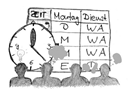 ZEIT Montag Dienst
D WA
M WA
M WA
E WA